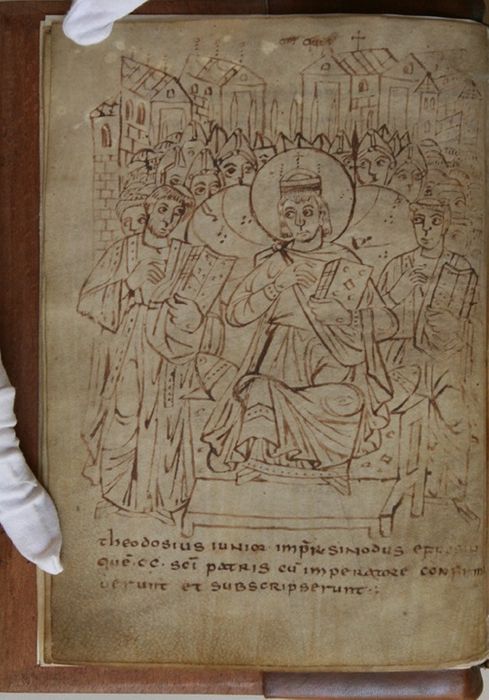 theodosius iunior. impr sinodus
que. CC. sci patris cu imperatore confirm
uerunt et subscripserunt:,